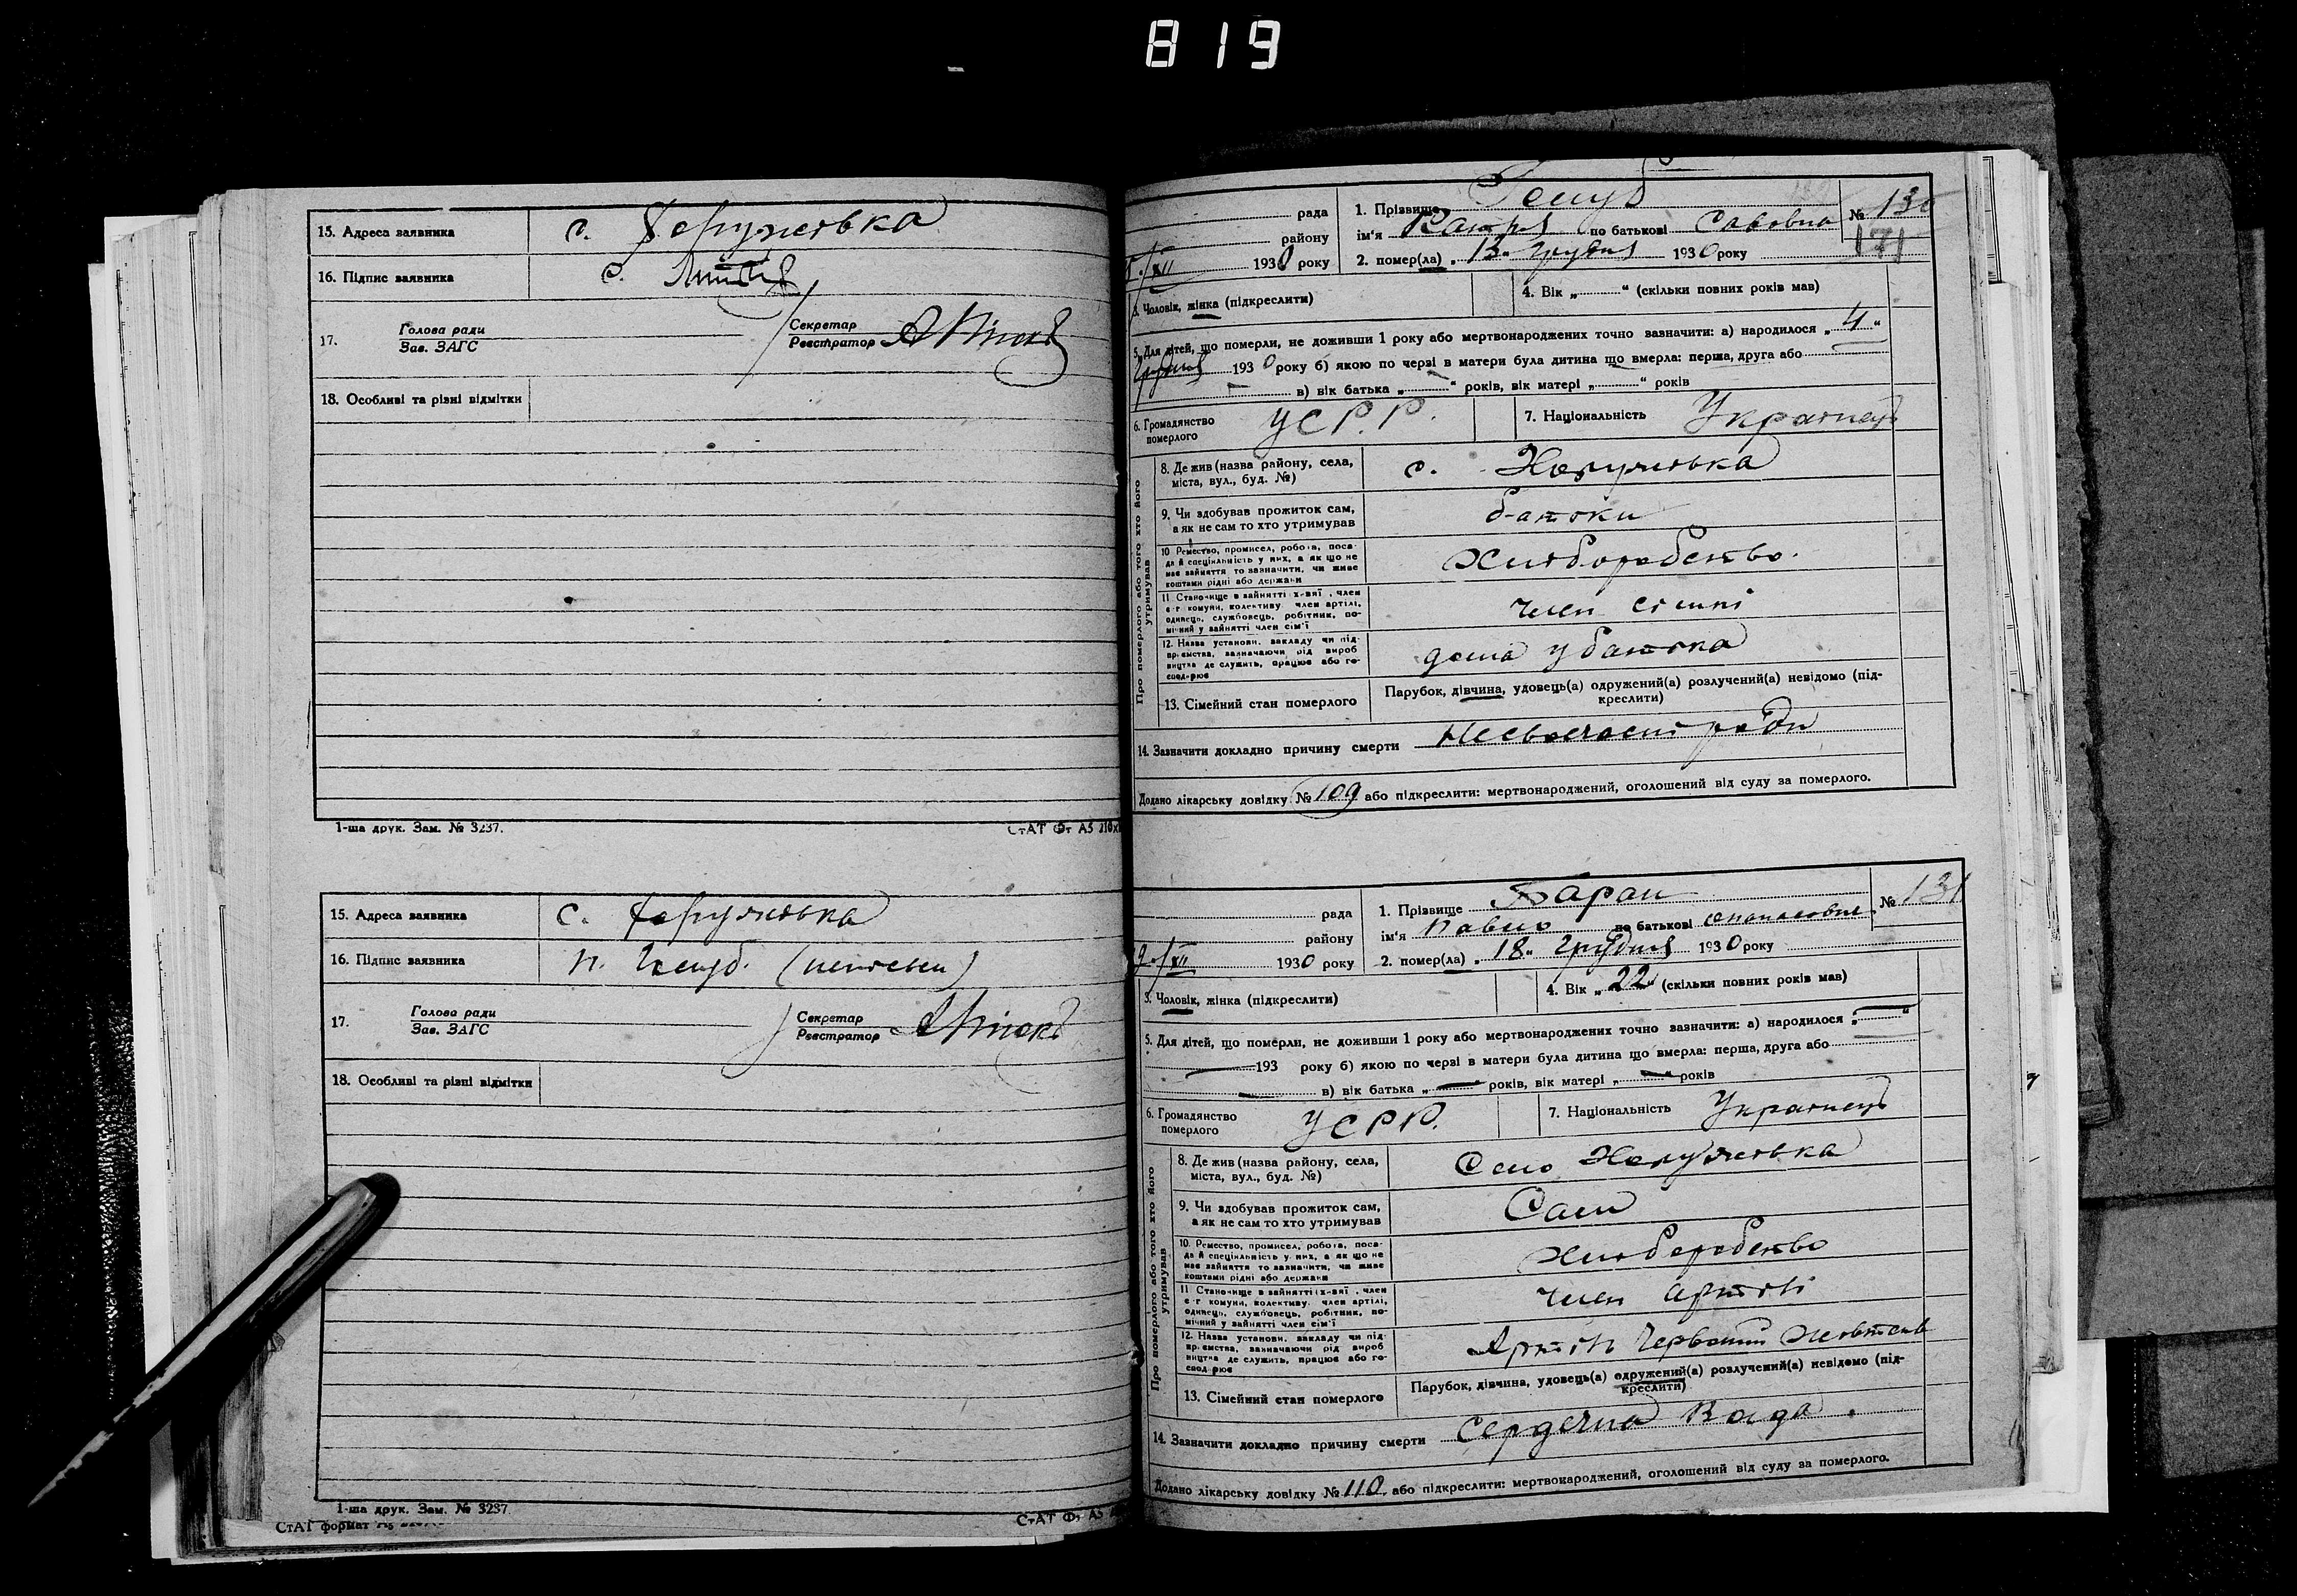 819
15. Адреса заявника
16. Підпис заявника
с.
17. Голова ради
Зав. ЗАГС
Секретар
Реєстратор
18. Особливі та різні відмітки
1-ша друк. Зам. № 3237.
СтАТ Фт А5 210х
15. Адреса заявника
с.
16. Підпис заявника
17. Голова ради
Зав. ЗАГС
Секретар
Реєстратор
18. Особливі та різні відмітки
1-ша друк. Зам. № 3237.
СтАТ формат
СтАТ Фт А5
рада
1. Прізвище
№ 130
171
району
ім'я по батькові Савовна
XII 1930 року
2. помер(ла) „13„ грудня 1930 року
3. Чоловік, жінка (підкреслити)
4. Вік „ “ (скільки повних років мав)
5. Для дітей, що померли, не доживши 1 року або мертвонароджених точно зазначити: а) народилося „4“
грудня 1930 року б) якою по черзі в матери була дитина що вмерла: перша, друга або
в) вік батька „ “ років, вік матері „ “ років
6. Громадянство
померлого
УСРР.
7. Національність Українець
Про померлого або того хто його
утримував
8. Де жив (назва району, села,
міста, вул., буд. №)
с.
9. Чи здобував прожиток сам,
а як не сам то хто утримував
батьки
10 Ремество, промисел, робота, поса-
да й спеціяльність у них, а як що не
має зайняття то зазначити, чи живе
коштами рідні або держави
Хліборобство.
11 Становище в зайнятті х-вяї , член
с-г комуни, колективу член артілі,
одинець, службовець, робітник, по-
мічний у зайнятті член сім'ї
член сімні
12. Назва установи, закладу чи під-
приємства, зазначаючи рід вироб
ництва де служить, працює або го-
сподарює
дома у батька
13. Сімейний стан померлого
Парубок, дівчина, удовець(а) одружений(а) розлучений(а) невідомо (під-
креслити)
14. Зазначити докладно причину смерти Несвочасні роди
Додано лікарську довідку № 109 або підкреслити: мертвонароджений, оголошений від суду за померлого.
рада
1. Прізвище Баран
№ 131
району
ім'я Павло по батькові
XII 1930 року
2. помер(ла) „18„ грудня 1930 року
3. Чоловік, жінка (підкреслити)
4. Вік „22“ (скільки повних років мав)
5. Для дітей, що померли, не доживши 1 року або мертвонароджених точно зазначити: а) народилося „ “
193 року б) якою по черзі в матери була дитина що вмерла: перша, друга або
в) вік батька „ “ років, вік матері „ “ років
6. Громадянство
померлого
УСРР.
7. Національність Українець
Про померлого або того хто його
утримував
8. Де жив (назва району, села,
міста, вул., буд. №)
Село
9. Чи здобував прожиток сам,
а як не сам то хто утримував
Сам
10. Ремество, промисел, робота, поса-
да й спеціяльність у них, а як що не
має зайняття то зазначити, чи живе
коштами рідні або держави
Хліборобство
11 Становище в зайнятті х-вяї , член
с-г комуни, колективу член артілі,
одинець, службовець, робітник, по-
мічний у зайнятті член сім'ї
член Артілі
12. Назва установи, закладу чи під-
приємства, зазначаючи рід вироб
ництва де служить, працює або го-
сподарює
Артіль Червоний Жовтень
13. Сімейний стан померлого
Парубок, дівчина, удовець(а) одружений(а) розлучений(а) невідомо (під-
креслити)
14. Зазначити докладно причину смерти Сердечна Вада.
Додано лікарську довідку № 110 або підкреслити: мертвонароджений, оголошений від суду за померлого.